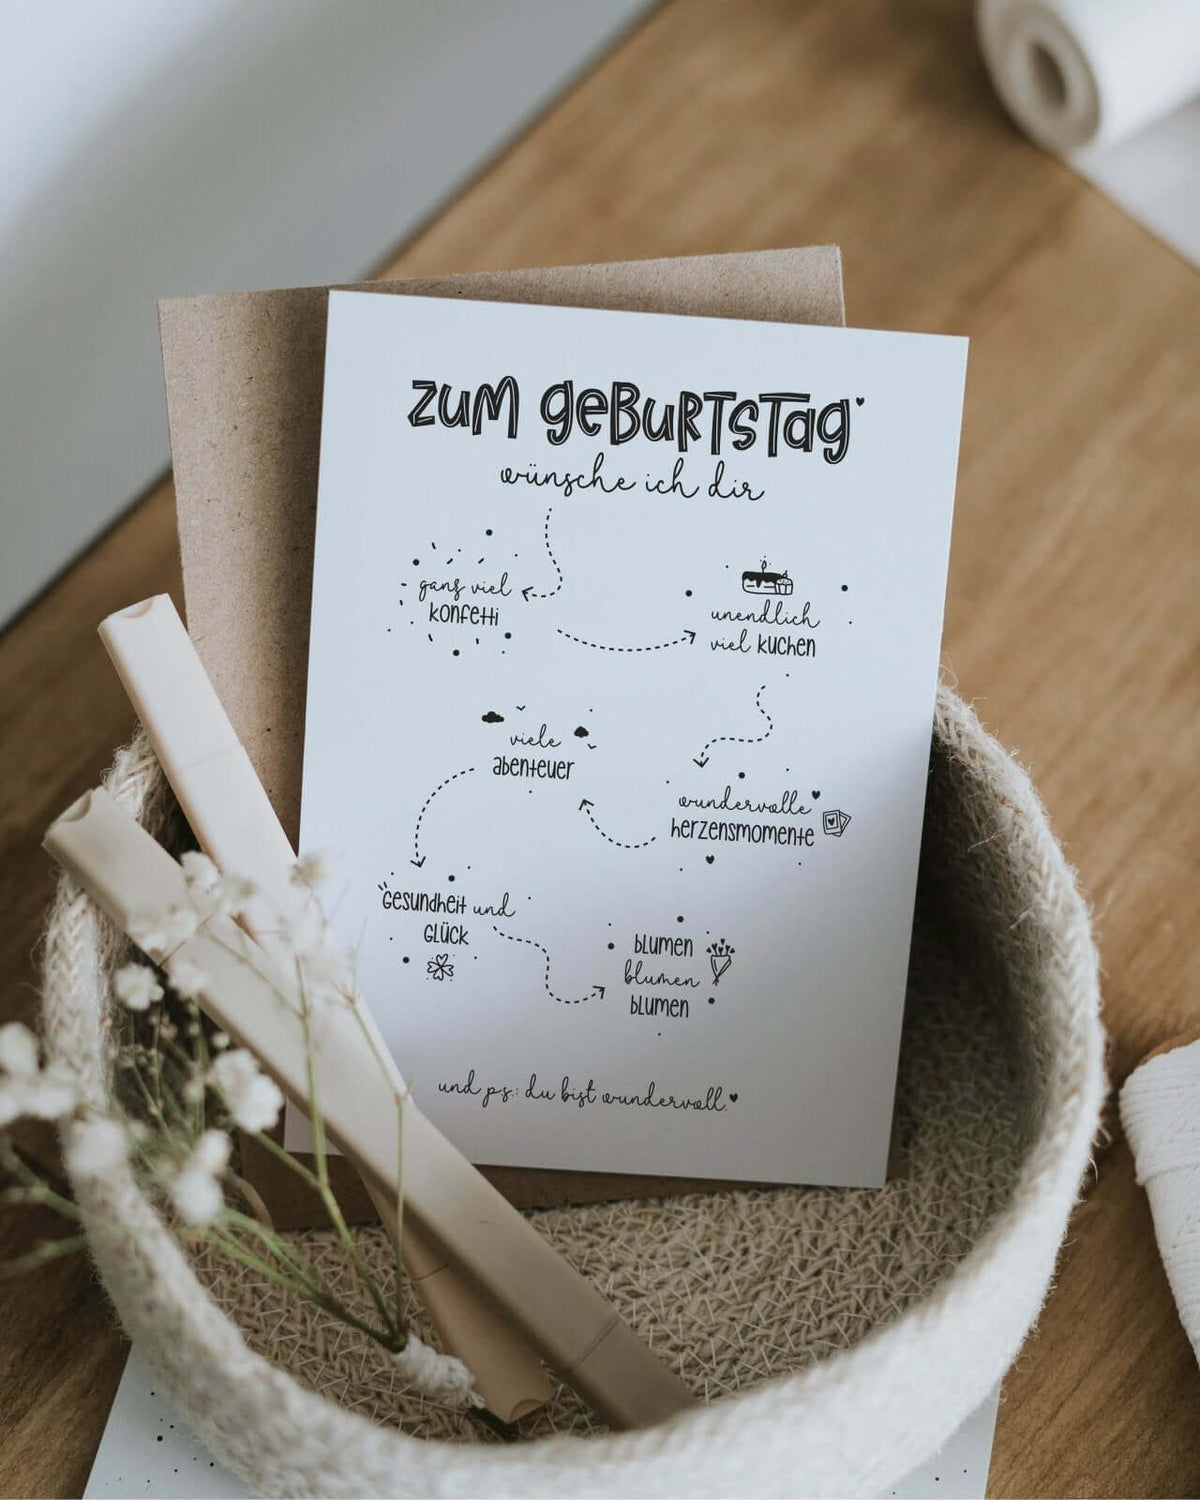 zum geburtstag
wünsche ich dir
ganz viel
konfetti
unendlich
viel kuchen
wundervolle
herzensmomente
viele
abenteuer
Gesundheit und
Glück
blumen
blumen
blumen
und ps: du bist wundervoll.